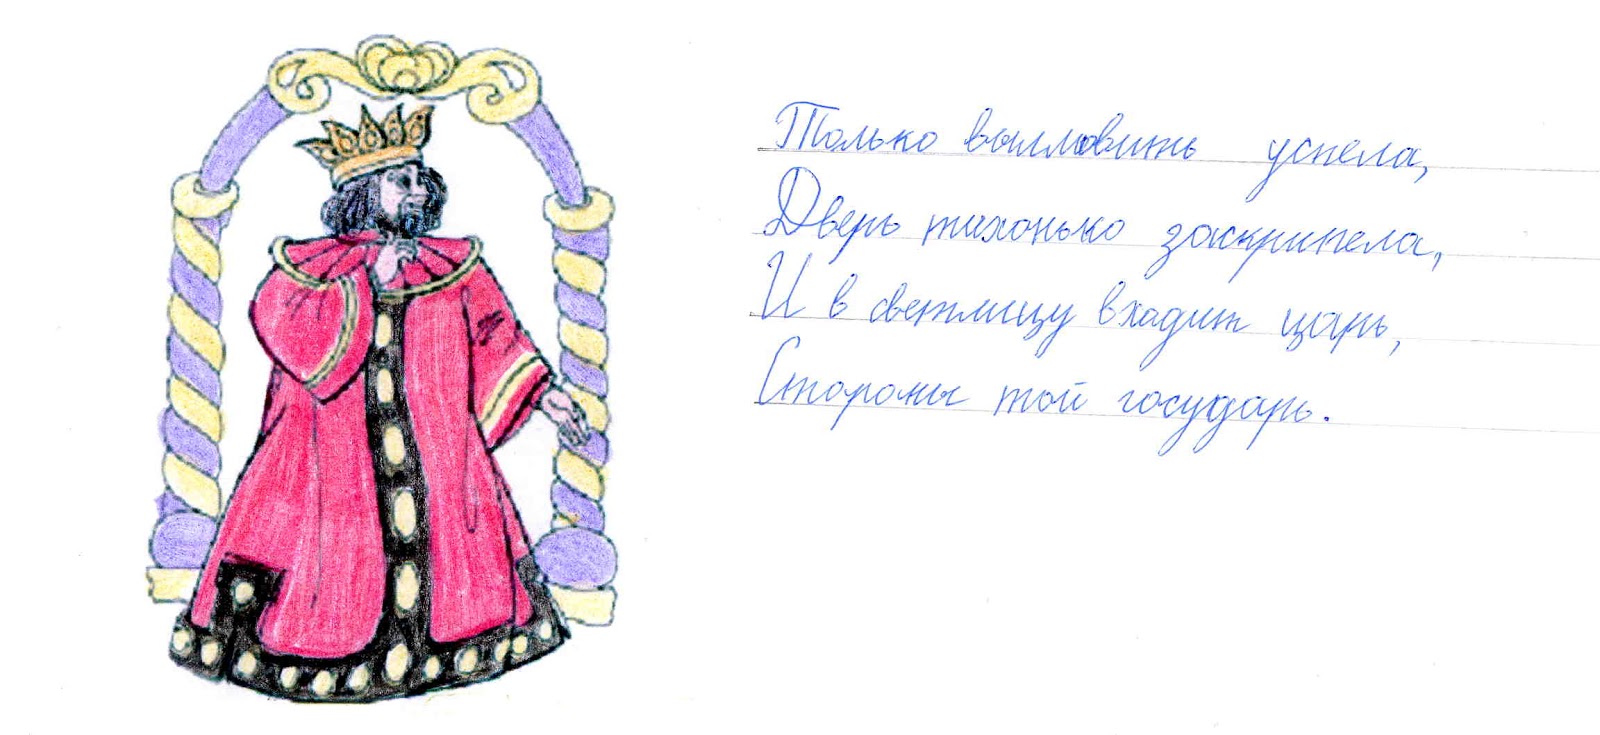 Только вылмовить успела,
Дверь тихонько заскрипела,
И в светлицу входит царь,
Стороны той государь.